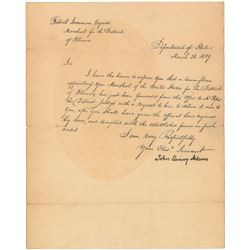 Robert Lemmon Esquire
Marshal for the District
of Illinois
Department of State
March 26. 1819
Sir
I have the honor to inform you that a Commission
appointing you Marshal of the United States for the District
of Illinois, has just been forwarded from this Office to Mr
the District Judge, with a request to him to deliver it over to
You, as soon as you shall have given the official bond required
by law, and complied with the established forms in such
cases
I am Very Respectfully
Your Obdt Servant
John Quincy Adams